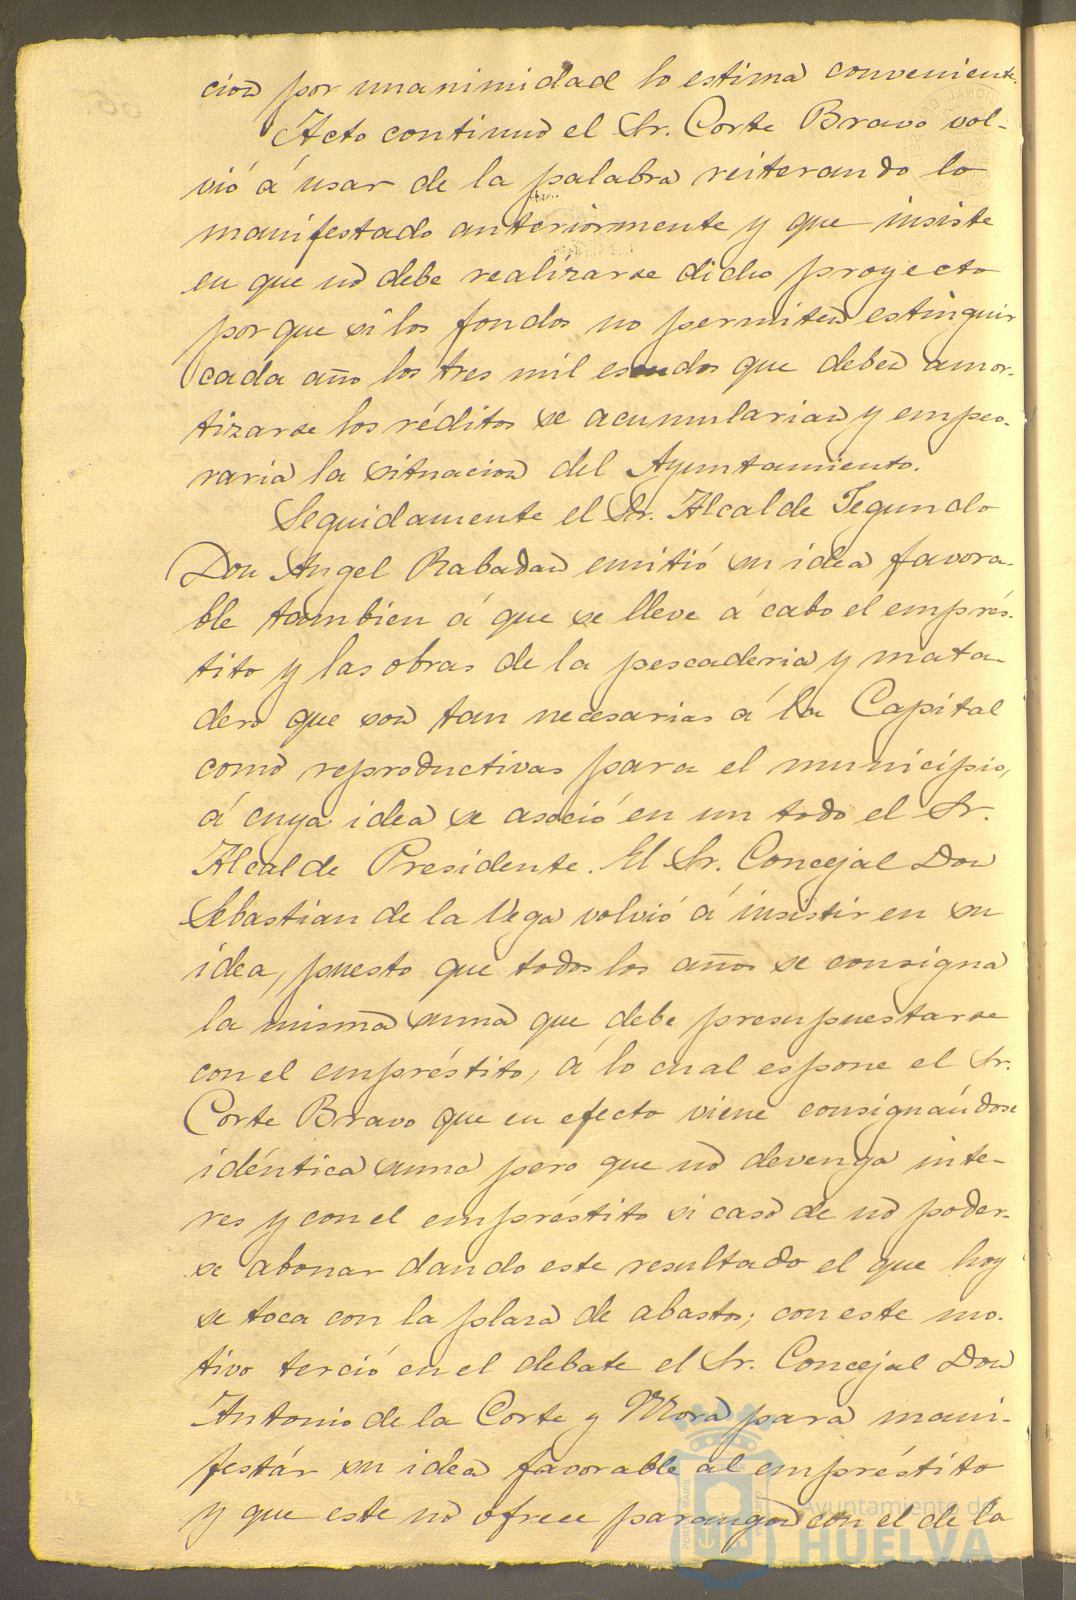 cion por unanimidad lo estima conveniente.
Acto continuo el Sr. Corte Bravo vol-
vió á usar de la palabra reiterando lo
manifestado anteriormente y que insiste
en que no debe realizarse dicho proyecto
porque si los fondos no permiten estinguir
cada año los tres mil escudos que deben amor-
tizarse los réditos se acumularian y empeo-
raria la situacion del Ayuntamiento.
Seguidamente el Sr. Alcalde Segundo
Don Angel Rabadan emitió su idea favora-
ble tambien á que se lleve á cabo el emprés-
tito y las obras de la pescaderia y mata-
dero que son tan necesarias á la Capital
como reproductivas para el municipio,
á cuya idea se asoció en un todo el Sr.
Alcalde Presidente. El Sr. Concejal Don
Sebastian de la Vega volvió á insistir en su
idea, puesto que todos los años se consigna
la misma suma que debe presupuestarse
con el empréstito, á lo cual espone el Sr.
Corte Bravo que en efecto viene consignándose
idéntica suma pero que no devenga inte-
res y con el empréstito si caso de no poder-
se abonar dando este resultado el que hoy
se toca con la plaza de abastos; con este mo-
tivo terció en el debate el Sr. Concejal Don
Antonio de la Corte y Mora para mani-
festár su idea favorable al empréstito
y que este no ofrece parangon con el de la
Ayuntamiento de
HUELVA